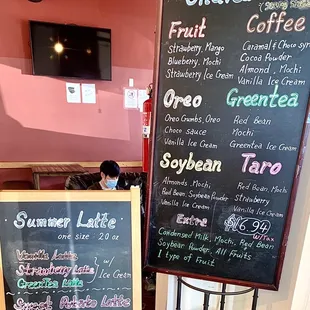 Fruit
Strawberry, Mango
Blueberry, Mochi
Strawberry Ice Cream
Coffee
Caramel & Choco syr
Cocoa Powder
Almond, Mochi
Vanilla Ice Cream
Oreo
Oreo Crumbs, Oreo
Choco sauce
Vanilla Ice Cream
Greentea
Red Bean
Mochi
Greentea Ice Cream
Soybean
Almonds, Mochi
Red Bean, Soybean Powder
Vanilla Ice Cream
Taro
Red Bean, Mochi
Strawberry
Vanilla Ice Cream
Extra
Condensed Milk, Mochi, Red Bean
Soybean Powder, All Fruits
1 type of Fruit
$16.94
w/tax
Summer Latte
one size - 20 oz
Vanilla Latte
Strawberry Latte
Greentea Latte
w/
Ice Cream
Sweet Potato Latte